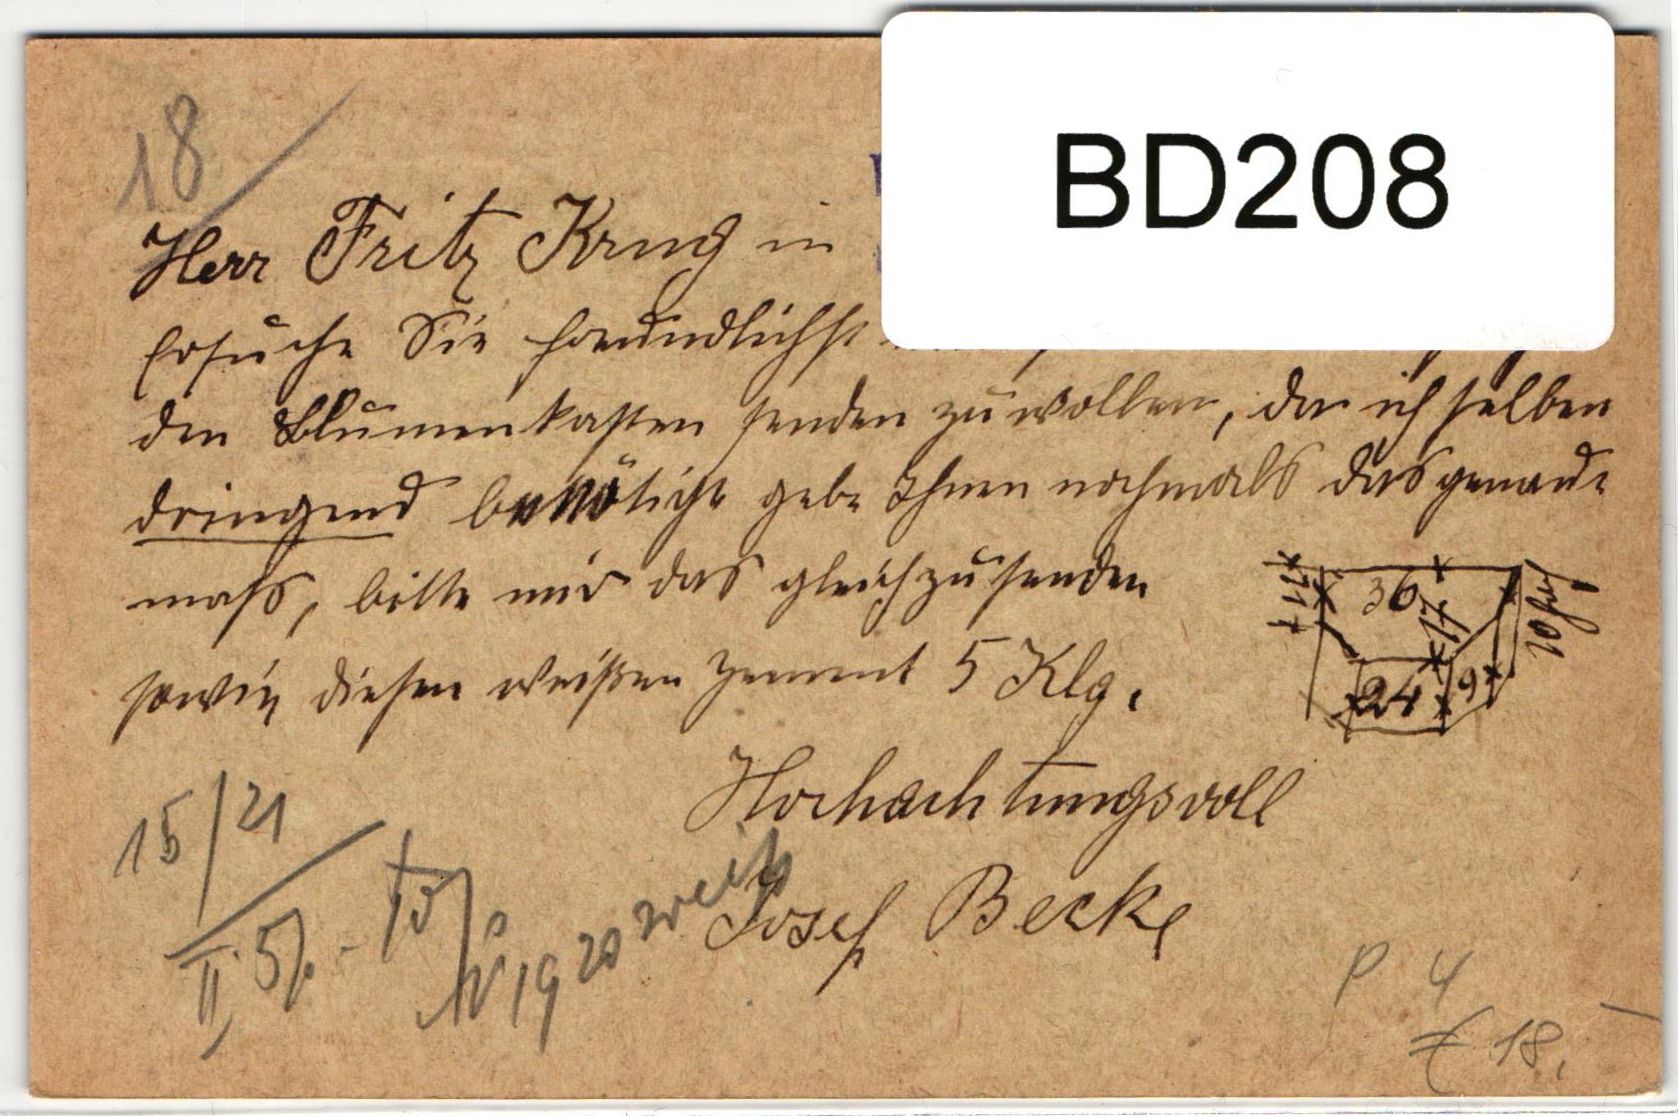 BD208
18
Herr Fritz Krug in
Ersuche Sie freundlichst
den Blumenkasten senden zu wollen, da ich selben
dringend benötige gebe Ihnen nochmals das genaue
mass, bitte mir das gleich zu senden
sowie diesen weißen Zement 5 Klg.
11 36 17 10
24 9
Hochachtungsvoll
Josef Becke
15/21
II 5%
No 19 20 weiß
P 4
€ 18.